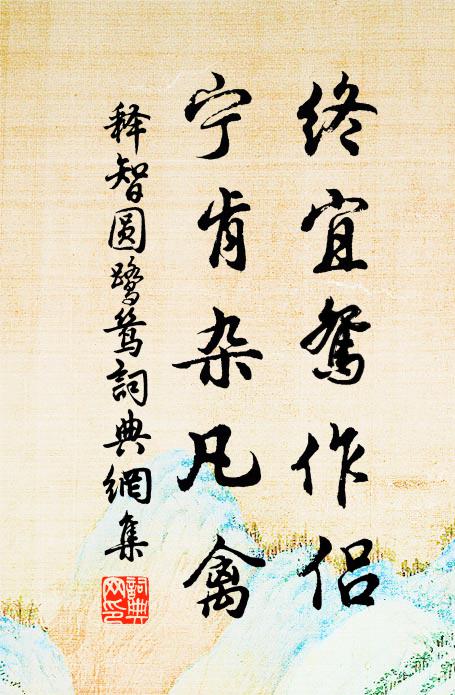 终宜鸳作侣
宁肯杂凡禽
释智圆鹭鸶詞典網集
詞典网印